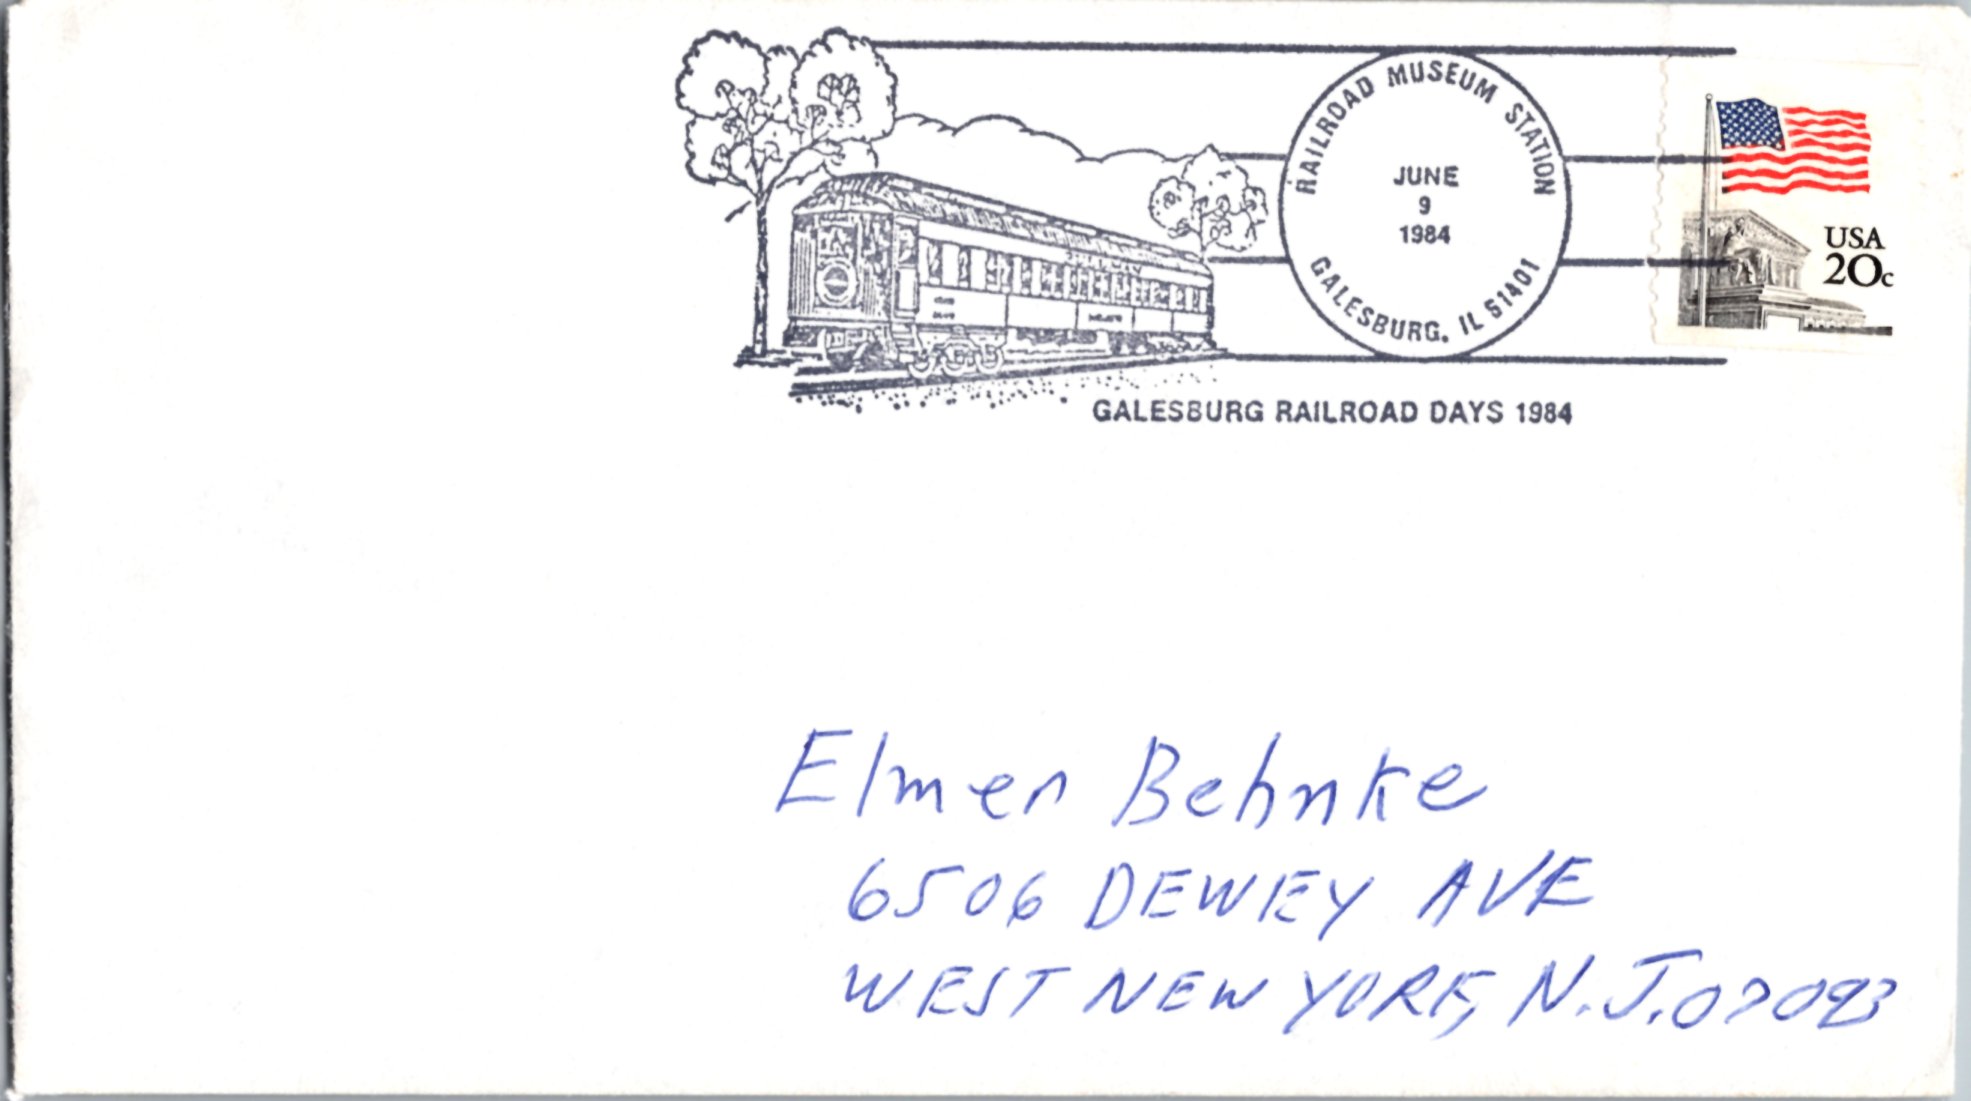 RAILROAD MUSEUM STATION
JUNE
9
1984
GALESBURG, IL 61401
GALESBURG RAILROAD DAYS 1984
USA
20c
Elmer Behnke
6506 DEWEY AVE
WEST NEW YORK, N.J. 07093